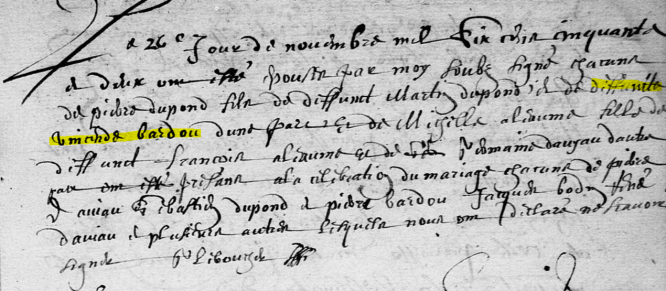 Le 26e Jour de novembre mil Six cens cinquante
et deux ont esté Espousés par moy soubz signé chacuns
de pierre dupond fils de deffunct Martin dupond et de deffuncte
bardou dune part Et de Michelle aleaume fille de
deffunct francois aleaume et de Romaine davyau dautre
part ont esté presans a la celebration du mariage chacuns de pierre
davyau Sebastien dupond et pierre bardou Jacques bodin René
davyau et plusieurs autres lesquels nous ont declaré ne scavoir
signer